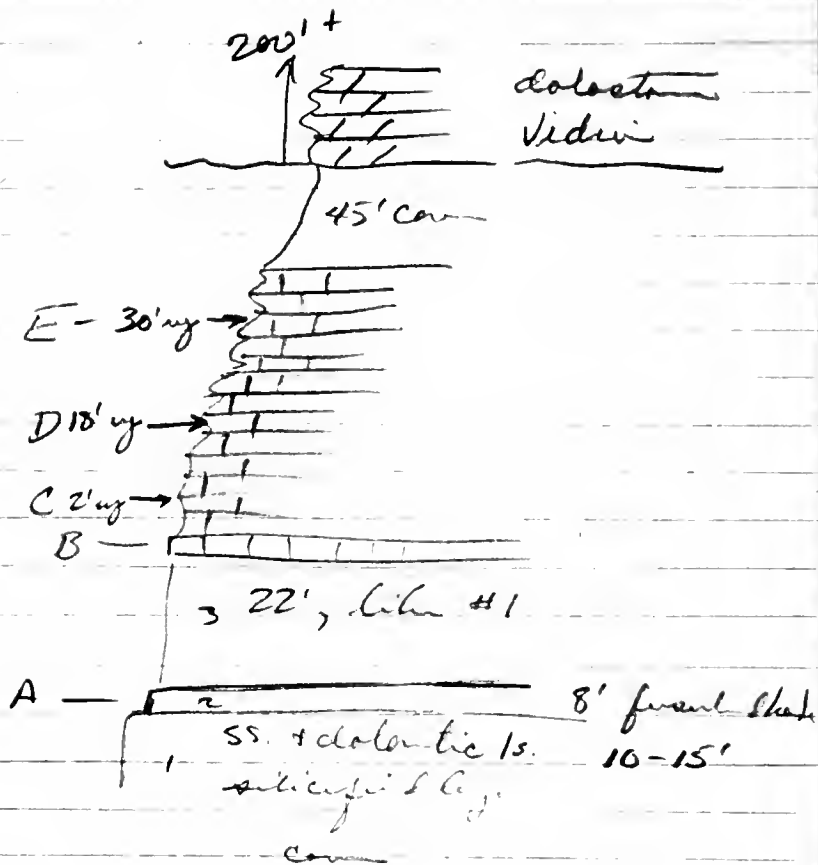 200'+
dolostone
Vidrio
45' cover
E - 30' up
D 18' up
C 2' up
B
3 22', like #1
A
2
8'
1
ss. + dolomitic ls.
10-15'
silicified
cover